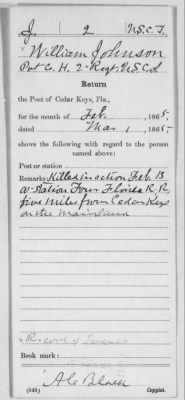 J. 2 U.S.C.T.
William Johnson
Pvt Co. H, 2 Regt. U.S.C.I.
Return
the Post of Cedar Keys, Fla.,
for the month of Feb., 1865.
dated Mar 1, 1865.
shows the following with regard to the person
named above:
Post or station
Remarks: Killed in action Feb. 13
at Station Four Florida R. R.
five miles from Cedar Keys
on the mainland
Record of
Book mark:
(646) Copyist.